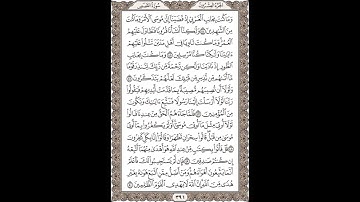 سورة القصص الجزء العشرون
وَمَا كُنتَ بِجَانِبِ الْغَرْبِيِّ إِذْ قَضَيْنَا إِلَىٰ مُوسَى الْأَمْرَ وَمَا كُنتَ
مِنَ الشَّاهِدِينَ ٤٤ وَلَٰكِنَّا أَنشَأْنَا قُرُونًا فَتَطَاوَلَ عَلَيْهِمُ
الْعُمُرُ وَمَا كُنتَ ثَاوِيًا فِي أَهْلِ مَدْيَنَ تَتْلُو عَلَيْهِمْ
آيَاتِنَا وَلَٰكِنَّا كُنَّا مُرْسِلِينَ ٤٥ وَمَا كُنتَ بِجَانِبِ
الطُّورِ إِذْ نَادَيْنَا وَلَٰكِن رَّحْمَةً مِّن رَّبِّكَ لِتُنذِرَ قَوْمًا
مَّا أَتَاهُم مِّن نَّذِيرٍ مِّن قَبْلِكَ لَعَلَّهُمْ يَتَذَكَّرُونَ ٤٦
وَلَوْلَا أَن تُصِيبَهُم مُّصِيبَةٌ بِمَا قَدَّمَتْ أَيْدِيهِمْ فَيَقُولُوا
رَبَّنَا لَوْلَا أَرْسَلْتَ إِلَيْنَا رَسُولًا فَنَتَّبِعَ آيَاتِكَ وَنَكُونَ
مِنَ الْمُؤْمِنِينَ ٤٧ فَلَمَّا جَاءَهُمُ الْحَقُّ مِنْ عِندِنَا قَالُوا
لَوْلَا أُوتِيَ مِثْلَ مَا أُوتِيَ مُوسَىٰ أَوَلَمْ يَكْفُرُوا بِمَا أُوتِيَ
مُوسَىٰ مِن قَبْلُ قَالُوا سِحْرَانِ تَظَاهَرَا وَقَالُوا إِنَّا بِكُلٍّ كَافِرُونَ
٤٨ قُلْ فَأْتُوا بِكِتَابٍ مِّنْ عِندِ اللَّهِ هُوَ أَهْدَىٰ مِنْهُمَا أَتَّبِعْهُ
إِن كُنتُمْ صَادِقِينَ ٤٩ فَإِن لَّمْ يَسْتَجِيبُوا لَكَ فَاعْلَمْ
أَنَّمَا يَتَّبِعُونَ أَهْوَاءَهُمْ وَمَنْ أَضَلُّ مِمَّنِ اتَّبَعَ هَوَاهُ بِغَيْرِ
هُدًى مِّنَ اللَّهِ إِنَّ اللَّهَ لَا يَهْدِي الْقَوْمَ الظَّالِمِينَ ٥٠
٣٩١